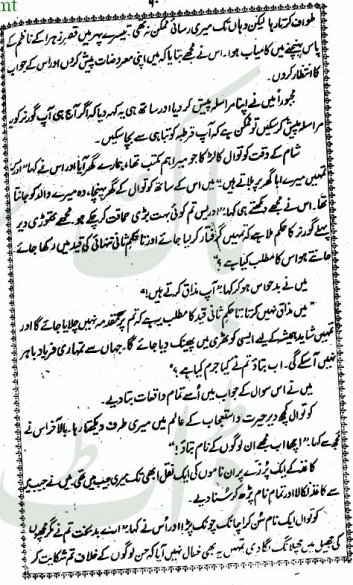 nt
۹۰
طواف کرتا رہا لیکن وہاں تک میری رسائی ممکن نہ تھی تیسرے پہر میں قصرِ زہرا کے ناظم کے
پاس پہنچنے میں کامیاب ہوا۔ اس نے مجھے بتایا کہ میں اپنی معروضات پیش کروں اور اس کے جواب
کا انتظار کروں۔
مجبوراً میں نے اپنا مراسلہ پیش کر دیا اور ساتھ ہی یہ کہہ دیا کہ اگر آج ہی آپ گورنر کو یہ
مراسلہ پیش کر سکیں تو ممکن ہے کہ آپ قرطبہ کو تباہی سے بچا سکیں۔
شام کے وقت کوتوال کا لڑکا جو میرا ہم مکتب تھا، ہمارے گھر آیا اور اس نے کہا "ادریس
تمہیں میرے ابا گھر پر بلاتے ہیں" میں اس کے ساتھ کوتوال کے گھر پہنچا، وہ میرے والد کو جانتا
تھا۔ اس نے مجھے دیکھتے ہی کہا، "ادریس تم کوئی بہت بڑی حماقت کر چکے ہو مجھے تھوڑی دیر
پہلے گورنر کا حکم ملا ہے کہ تمہیں گرفتار کر لیا جائے اور تاحکمِ ثانی تنہائی کی قید میں رکھا جائے
جانتے ہو اس کا مطلب کیا ہے؟"
میں نے بدحواس ہو کر کہا "آپ مذاق کرتے ہیں!"
"میں مذاق نہیں کرتا۔ تاحکمِ ثانی قید کا مطلب یہ ہے کہ تم پر مقدمہ نہیں چلایا جائے گا اور
تمہیں شاید ہمیشہ کے لیے ایسی کوٹھڑی میں پھینک دیا جائے گا۔ جہاں سے تمہاری فریاد باہر
نہیں آ سکے گی۔ اب بتاؤ تم نے کیا جرم کیا ہے؟"
میں نے اس سوال کے جواب میں اُسے تمام واقعات بتا دیے۔
کوتوال کچھ دیر حیرت و استعجاب کے عالم میں میری طرف دیکھتا رہا۔ بالآخر اس نے
مجھ سے کہا "اچھا اب مجھے ان لوگوں کے نام بتاؤ!"
کاغذ کے ایک پرزے پر ان ناموں کی ایک نقل ابھی تک میری جیب میں تھی میں نے جیب
سے کاغذ نکالا اور تمام نام پڑھ کر سنا دیے۔
کوتوال ایک نام سُن کر اچانک چونک پڑا اور اُس نے کہا "ارے بدبخت تم نے مگرمچھوں
کی جھیل میں چھلانگ لگا دی تمہیں یہ بھی خیال نہیں آیا کہ جن لوگوں کے خلاف تم شکایت کر